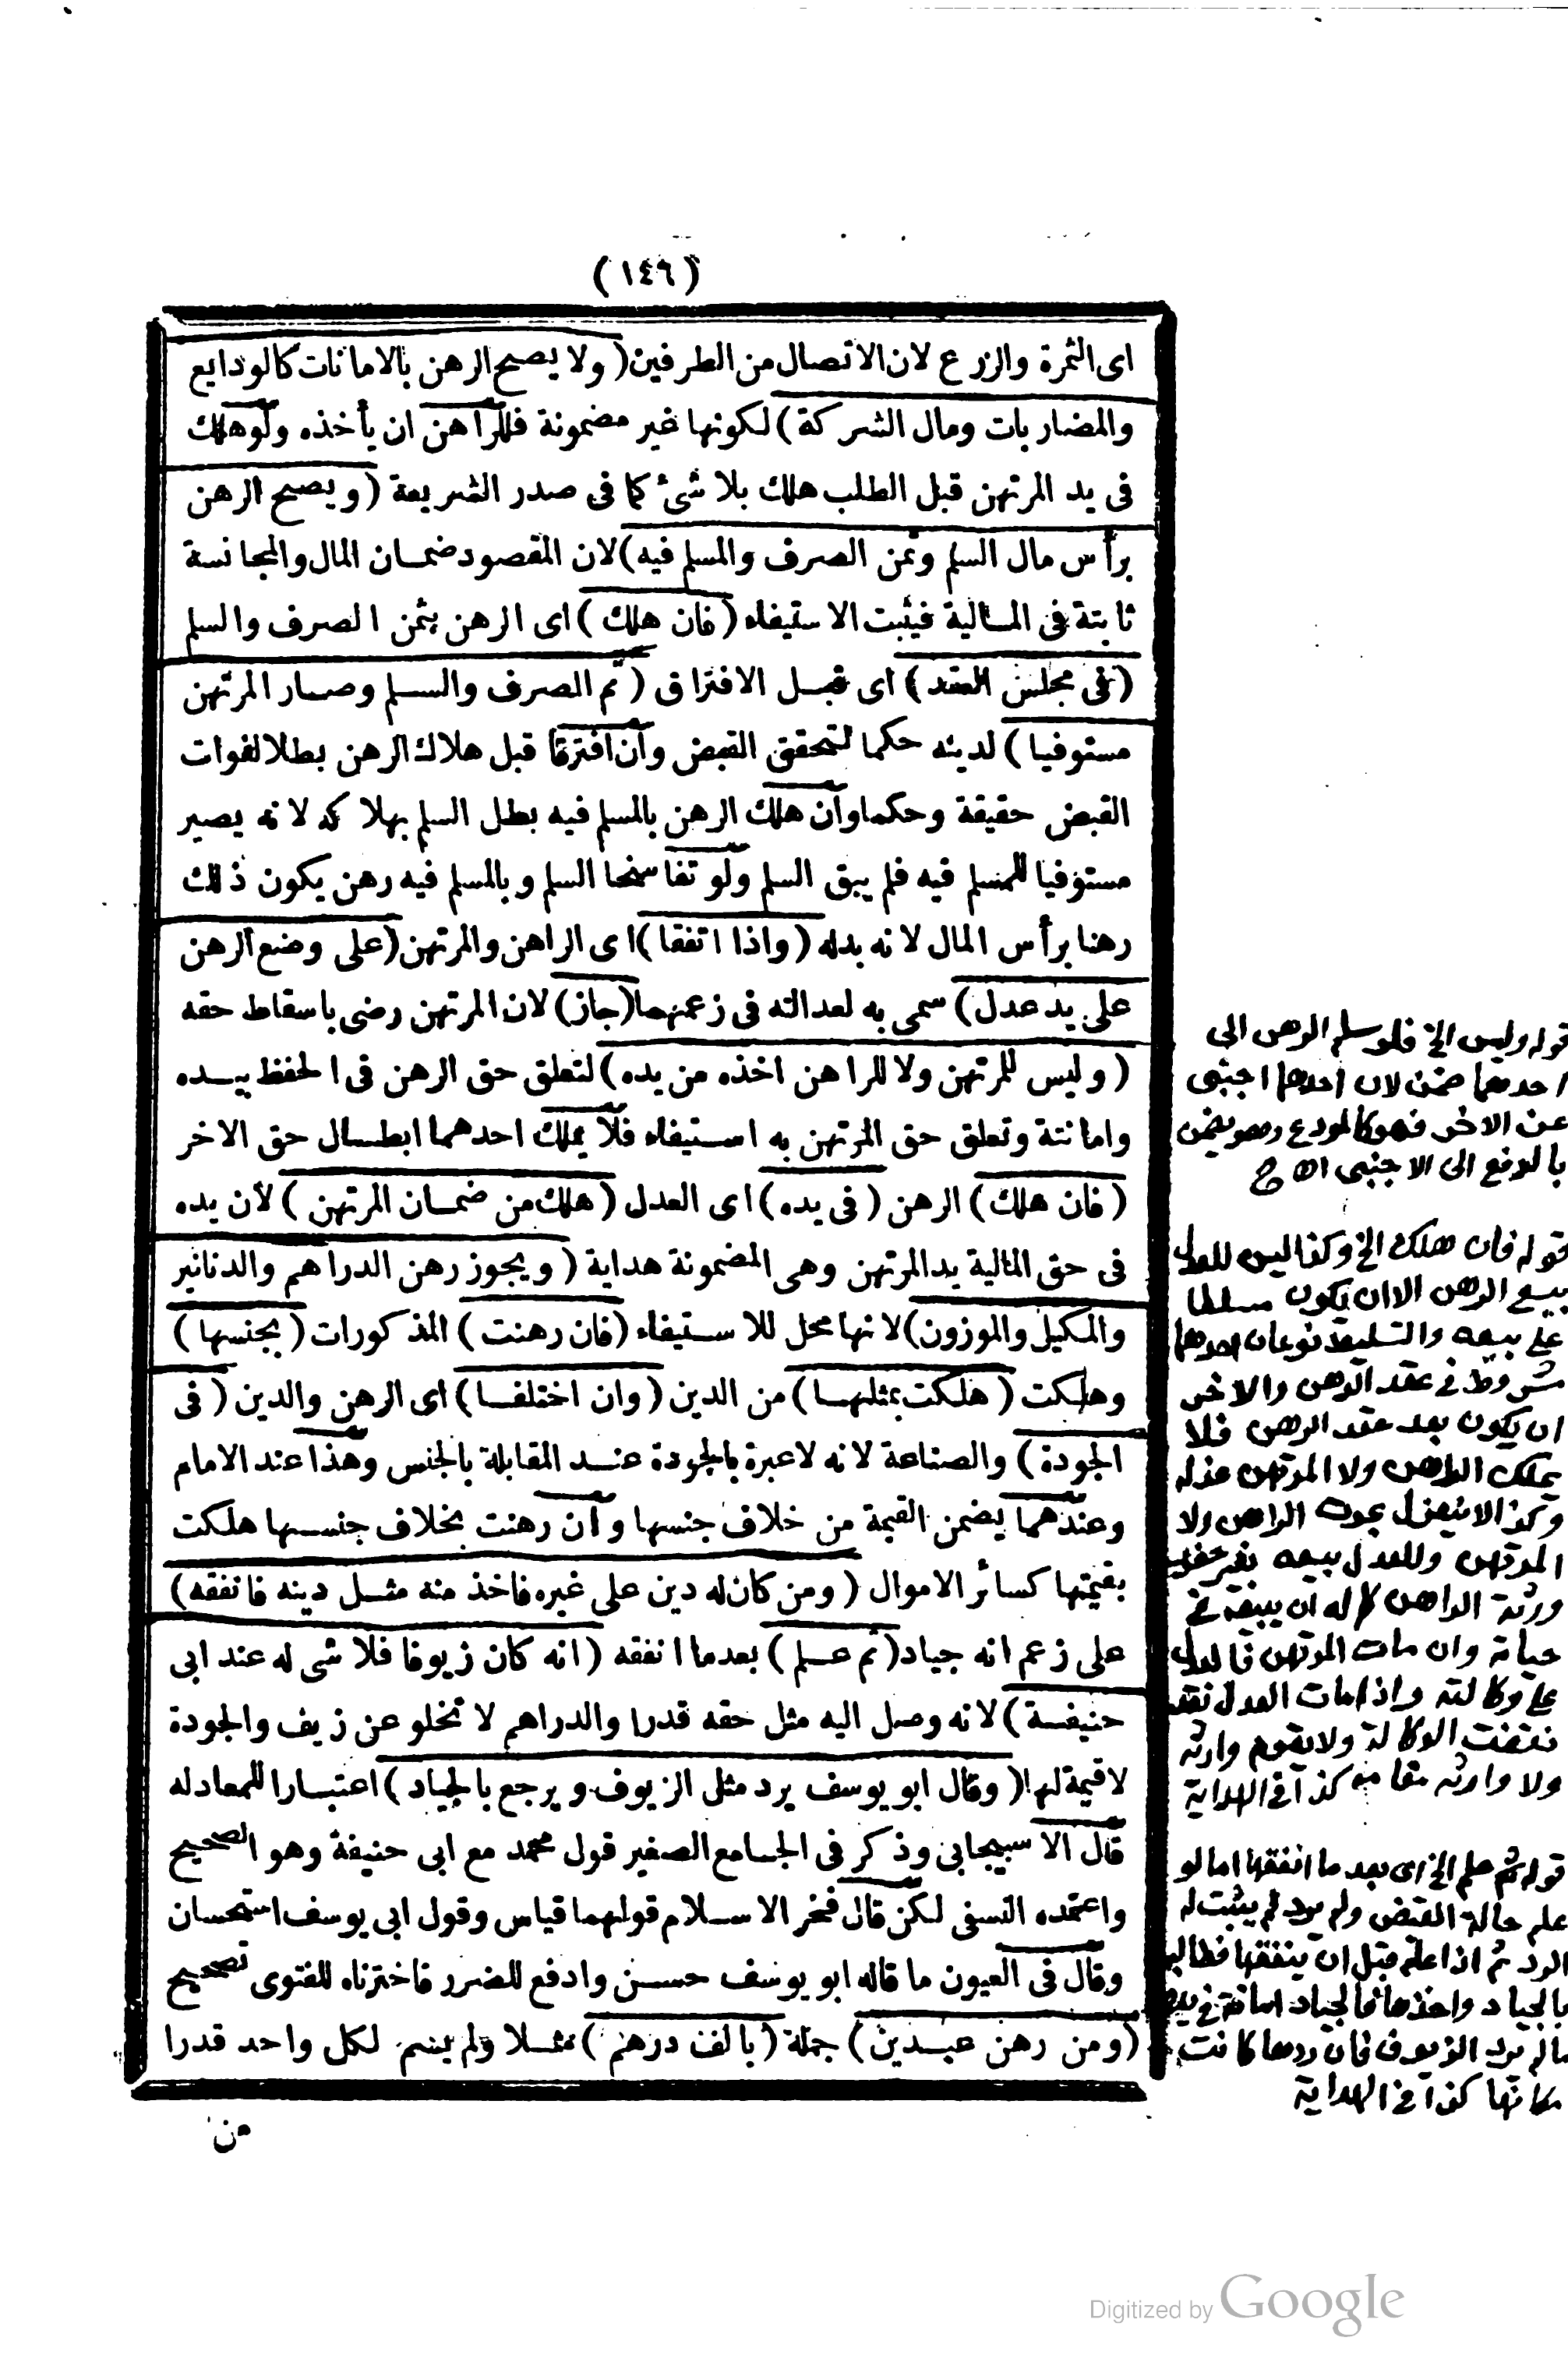 (١٤٦)
اى الثمرة والزرع لان الاتصال من الطرفين (ولا يصح الرهن بالامانات كالودايع
والمضاربات ومال الشركة) لكونها غير مضمونة فللراهن ان يأخذه ولو هلك
فى يد المرتهن قبل الطلب هلك بلا شئ كما فى صدر الشريعة (ويصح الرهن
برأس مال السلم وثمن الصرف والمسلم فيه) لان المقصود ضمان المال والمجانسة
ثابتة فى المالية فيثبت الاستيفاء (فان هلك) اى الرهن بثمن الصرف والسلم
(فى مجلس العقد) اى قبل الافتراق (تم الصرف والسلم وصار المرتهن
مستوفيا) لدينه حكما لتحقق القبض وان افترقا قبل هلاك الرهن بطلا لفوات
القبض حقيقة وحكما وان هلك الرهن بالمسلم فيه بطل السلم بهلاكه لانه يصير
مستوفيا للمسلم فيه فلم يبق السلم ولو تفاسخا السلم وبالمسلم فيه رهن يكون ذلك
رهنا برأس المال لانه بدله (واذا اتفقا) اى الراهن والمرتهن (على وضع الرهن
على يد عدل) سمى به لعدالته فى زعمهما (جاز) لان المرتهن رضى باسقاط حقه
(وليس للمرتهن ولا للراهن اخذه من يده) لتعلق حق الرهن فى الحفظ بيده
وامانته وتعلق حق المرتهن به استيفاء فلا يملك احدهما ابطال حق الاخر
(فان هلك) الرهن (فى يده) اى العدل (هلك من ضمان المرتهن) لأن يده
فى حق المالية يد المرتهن وهى المضمونة هداية (ويجوز رهن الدراهم والدنانير
والمكيل والموزون) لانها محل للاستيفاء (فان رهنت) المذكورات (بجنسها)
وهلكت (هلكت بمثلها) من الدين (وان اختلفا) اى الرهن والدين (فى
الجودة) والصناعة لانه لاعبرة بالجودة عند المقابلة بالجنس وهذا عند الامام
وعندهما يضمن القيمة من خلاف جنسها وان رهنت بخلاف جنسها هلكت
بقيمتها كسائر الاموال (ومن كان له دين على غيره فاخذ منه مثل دينه فانفقه)
على زعم انه جياد (ثم علم) بعدما انفقه (انه كان زيوفا فلا شى له عند ابى
حنيفة) لانه وصل اليه مثل حقه قدرا والدراهم لا تخلو عن زيف والجودة
لاقيمة لها (وقال ابو يوسف يرد مثل الزيوف ويرجع بالجياد) اعتبارا للمعادله
قال الاسبيجابى وذكر فى الجامع الصغير قول محمد مع ابى حنيفة وهو الصحيح
واعتمده النسفى لكن قال فخر الاسلام قولهما قياس وقول ابى يوسف استحسان
وقال فى العيون ما قاله ابو يوسف حسن وادفع للضرر فاخترناه للفتوى تصحيح
(ومن رهن عبدين) جملة (بالف درهم) مثلا ولم يسم لكل واحد قدرا
من
قوله وليس الخ فلو سلم الرهن الى
احدهما ضمن لان احدهما اجنبى
عن الاخر فهو كالمودع وهو يضمن
بالدفع الى الاجنبى اه ج
قوله فان هلك الخ وكذا ليس للعدل
بيع الرهن الا ان يكون مسلطا
على بيعه والتسليط نوعان احدهما
مشروط فى عقد الرهن والاخر
ان يكون بعد عقد الرهن فلا
يملك الراهن ولا المرتهن عزله
وكذا لا ينعزل بموت الراهن ولا
المرتهن وللعدل بيعه بغير
ورثة الراهن كما له ان يبيعه فى
حياته وان مات المرتهن فالعدل
على وكالته واذا مات العدل
انتقضت الوكالة ولا يقوم وارثه
ولا مقامه كذا فى الهداية
قوله ثم علم الخ اى بعد ما انفقها اما لو
علم حالة القبض ولم يرد لم يثبت له
الرد ثم اذا علم قبل ان ينفقها فطالبه
بالجياد واخذها فالجياد امانة فى يده
ما لم يرد الزيوف فان ردها كانت
مكانها كذا فى الهداية
Digitized by Google